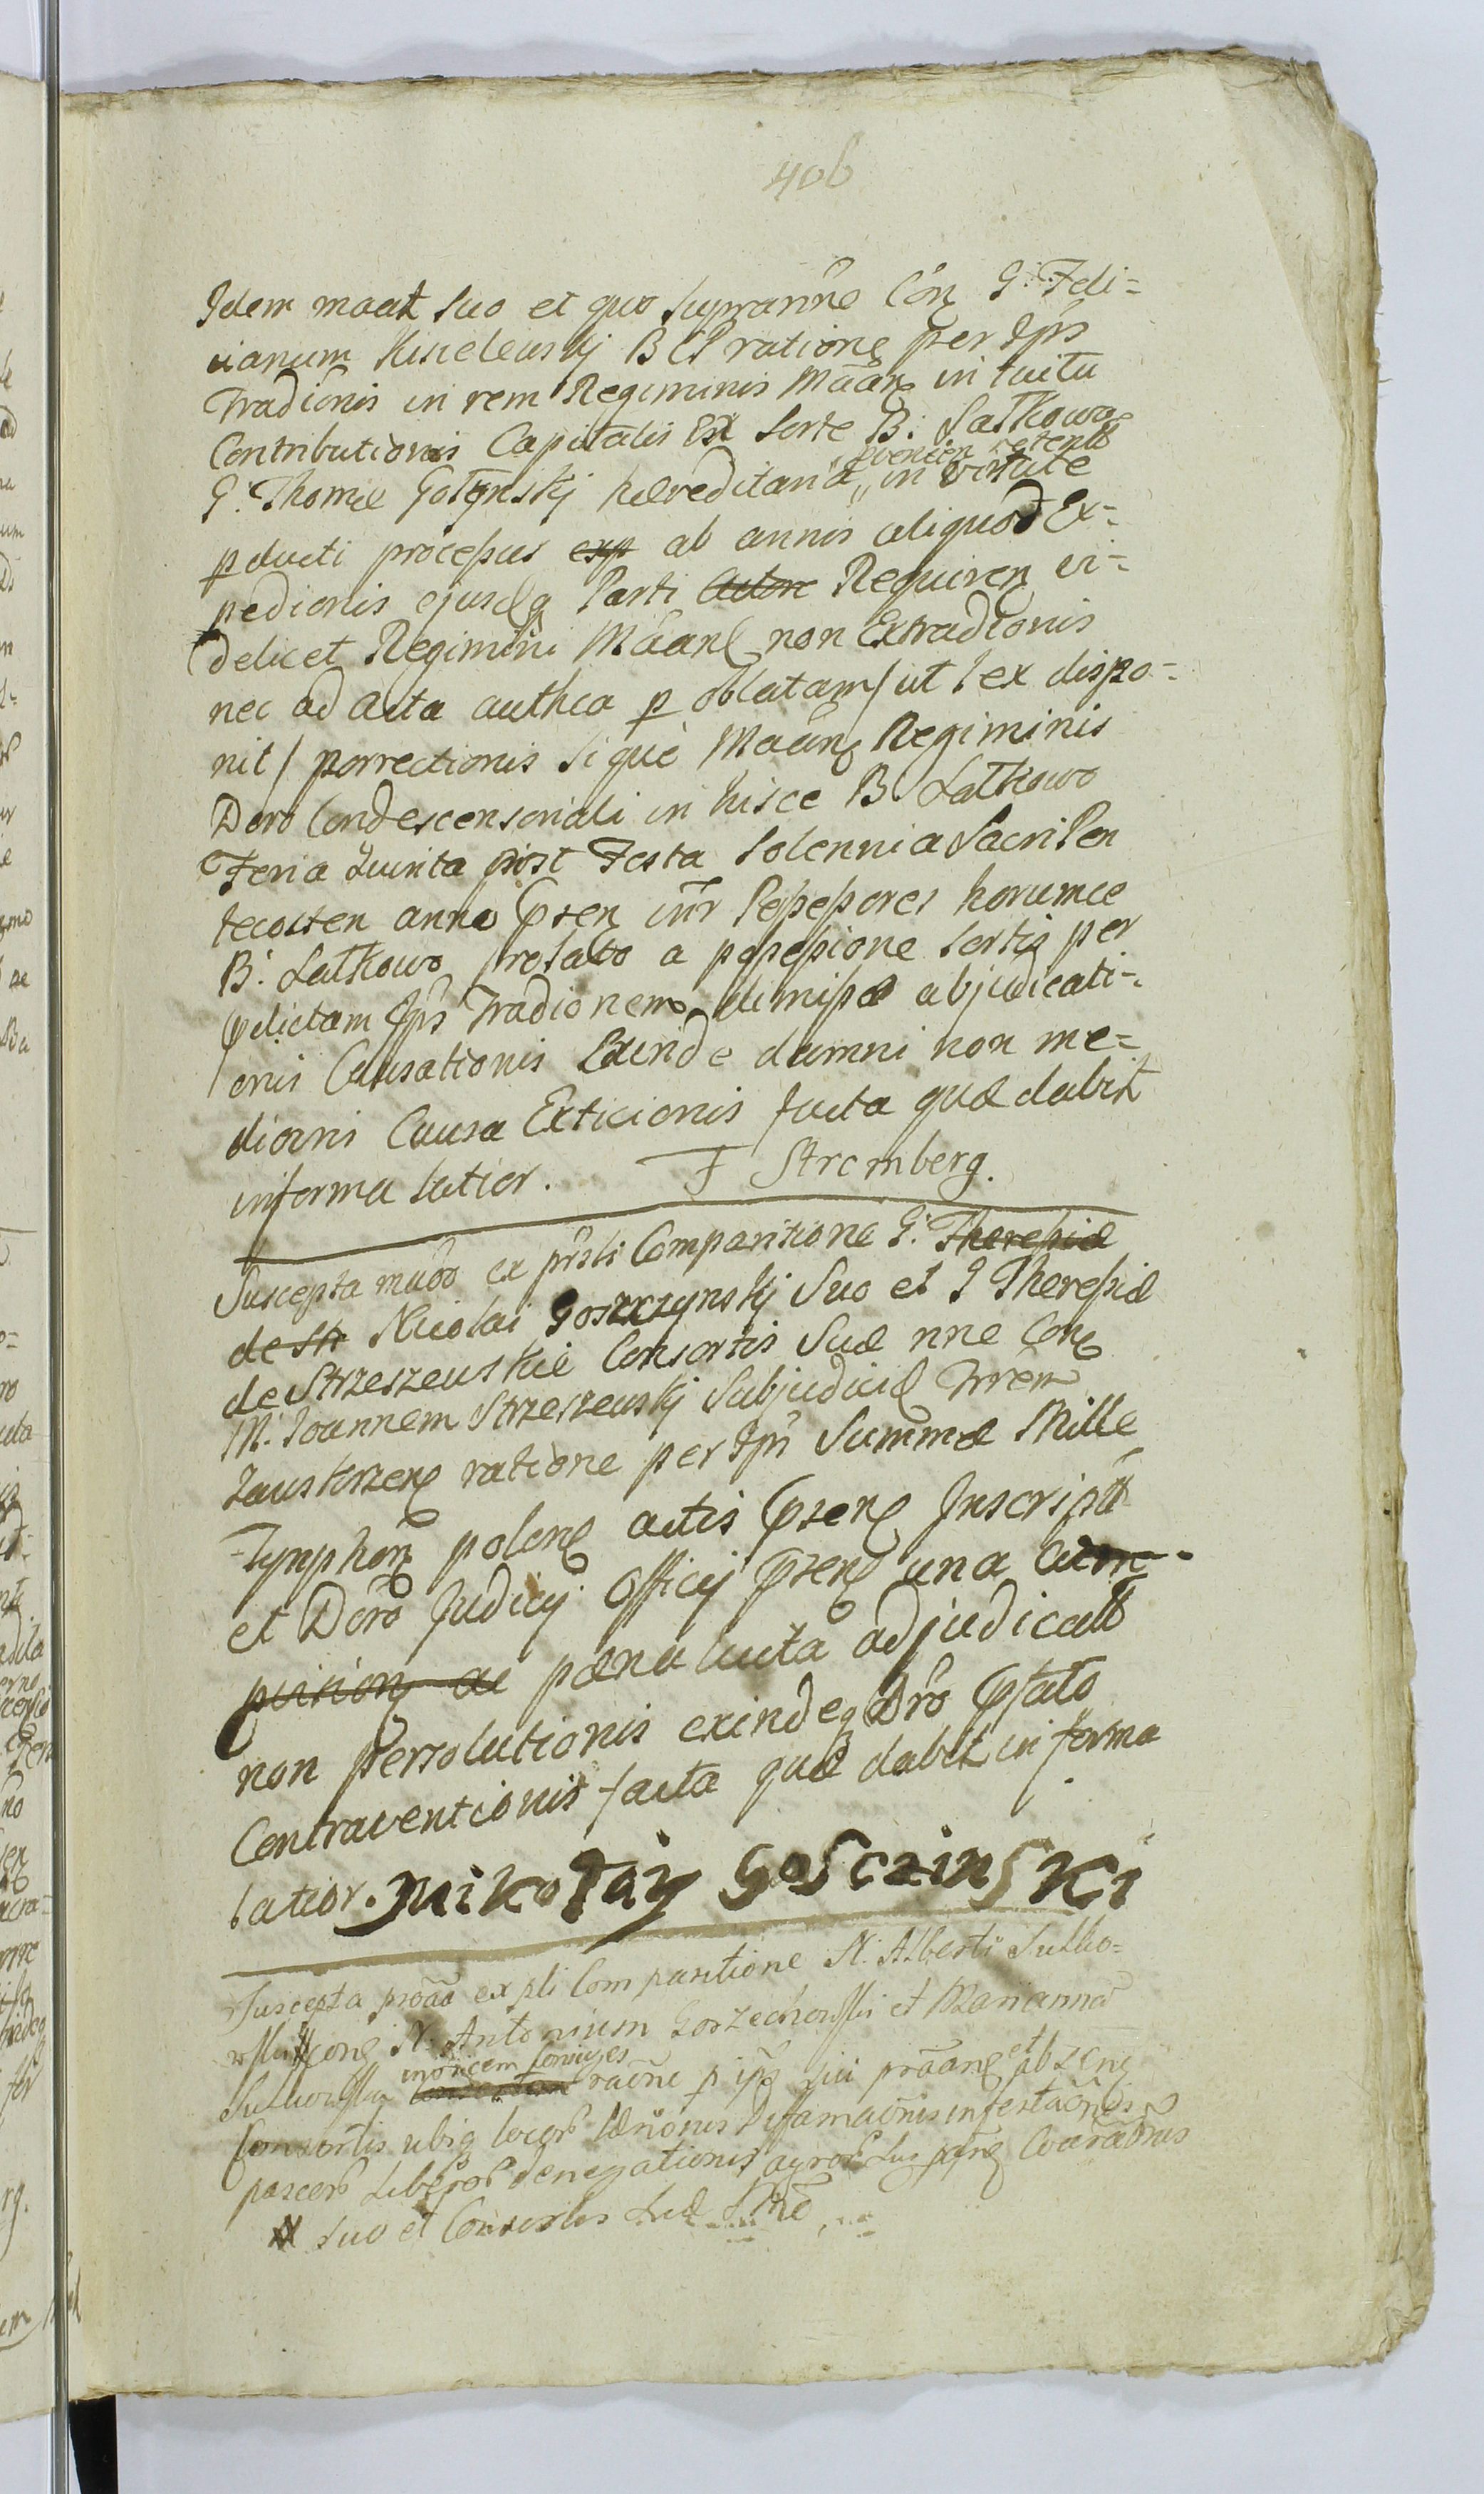 406
Idem maat suo et quo supranne Con G. Feli=
cianum Kisielewskj B CP ratione per Ips
Tradionis in rem Regiminis Maan in tuitu
Contributionis Capitalis Ex sorte B. Latkowo
provenien retent
G. Thomæ Gołynskj hæreditaria in virtute
pducti processus exp ab annis aliquod Ex=
pedionis ejusdq Parti Actore Requiren vi=
delicet Regimini Maan non Extradionis
nec ad Acta authca p oblatam / ut lex dispo=
nit / porrectionis sique Maan Regiminis
Dcro Condescensoriali in hisce B. Latkowo
Feria Quinta post Festa Solennia Sacri Pen
tecosten anno psen intr Possessores horumce
B. Latkowo prolato a possessione sortis per
pdictam Ips Tradionem dimissæ abjudicati=
onis Causationis Exinde damni non me=
diocris Causa Exticionis facta quæ dabit
informa latior. F Stromberg.
Suscepta mado ex prsli Comparitione G. Theressiæ
de Str Nicolai Goszczynskj Suo et G Theressiæ
de Strzeszewskie Consortis Suæ nne Con
M. Joannem Strzeszewskj Subjudicie Trrem
Zauskrzen ratione per Ips Summæ Mille
Tymphon polon actis psen Inscript
et Dcro Judicij Officij psen una cum
punion ac pæna lucta adjudicat
non persolutionis exindeq Dro pfato
Contraventionis facta quæ dabit in forma
latior. Mikołay Gosczinski
Suscepta proaa ex psli Comparitione N. Alberti Sulko=
wski con N. Antonium Gorzechowski et Mariannã
invicem Coniuges
Sulkowsky consortem raõne p ips sui praan et absen
Consortis ubiq locor Læsionis Diffamaõnis infestaõnis
pascer Liberor denegationis agror
suo et Consortis suæ Nne